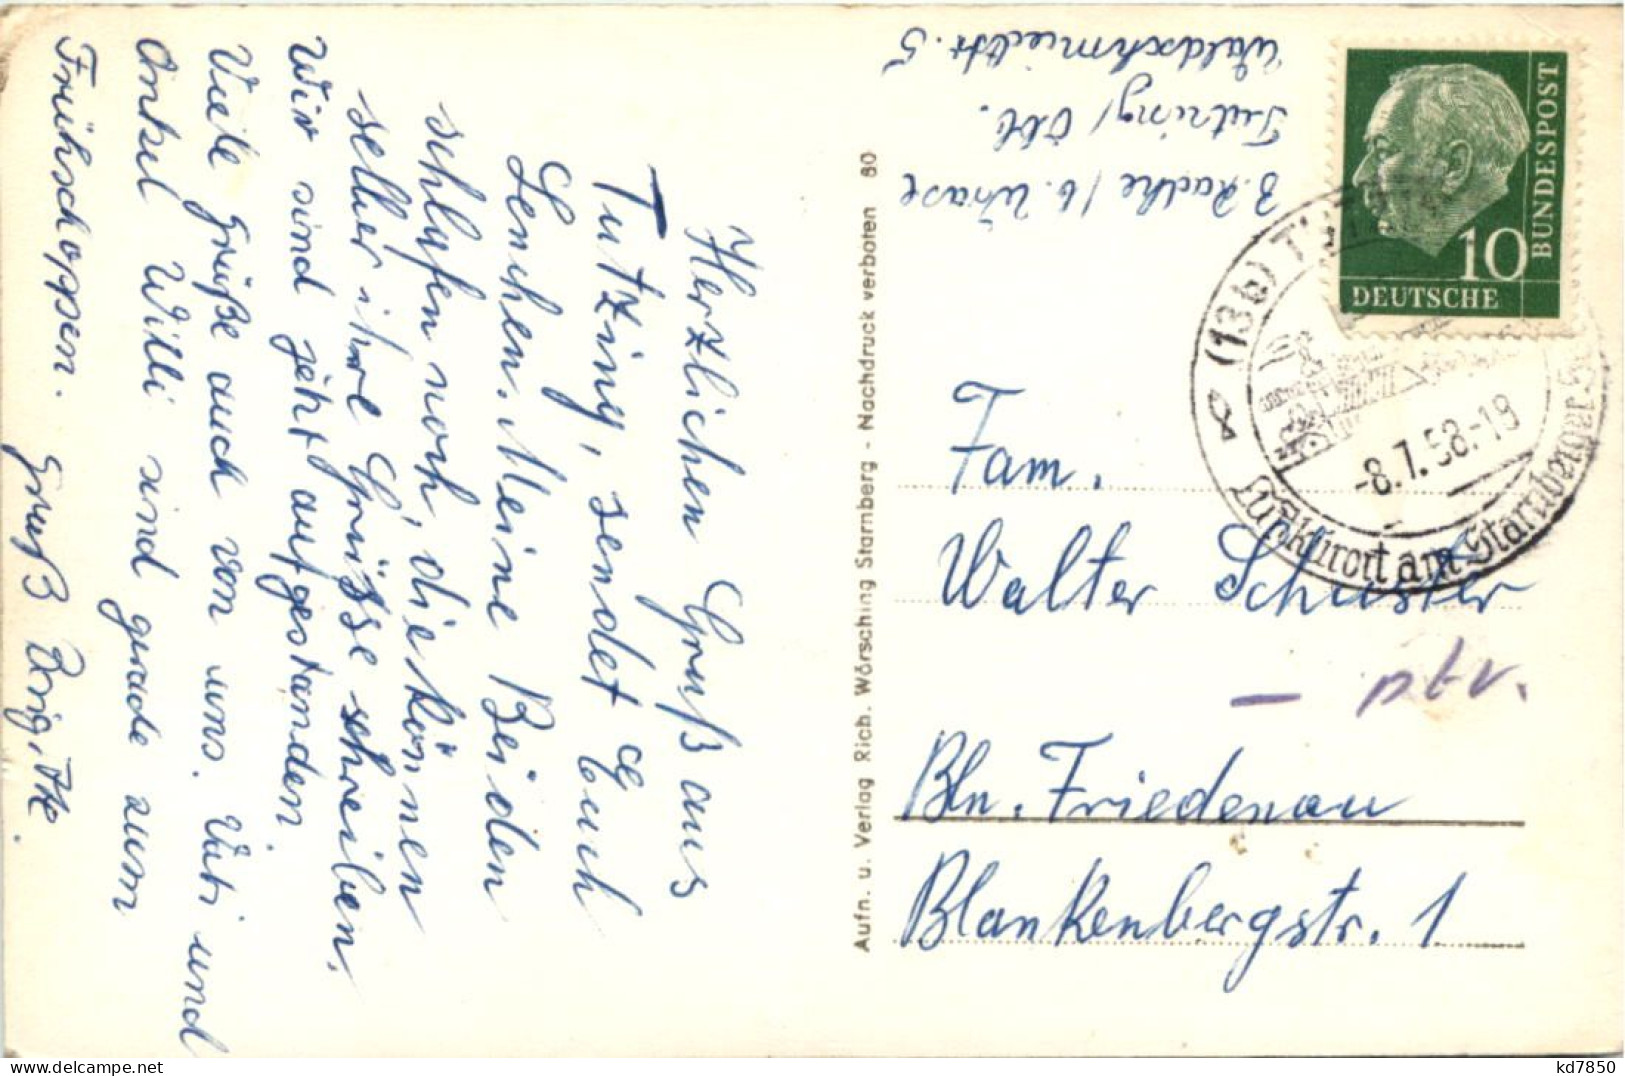 Herzlichen Gruß aus
Tutzing, sendet Euch
Lenchen. Meine Beiden
schlafen noch, die können
selber ihre Grüsse schreiben.
Wir sind jetzt aufgestanden.
Viele Grüße auch von uns. Vati und
Onkel Willi sind grade zum
Frühschoppen. Gruß Brigitte.
Aufn. u. Verlag Rich. Wörsching Starnberg - Nachdruck verboten 80
B. Radke / b. Wrase
Tutzing / Obb.
Waldschmidtstr. 5
10
DEUTSCHE
BUNDESPOST
(13b) TUTZING
-8.7.58.-18
Luftkurort am Starnberger S
Fam.
Walter Schuster
Bln. Friedenau
Blankenbergstr. 1
kd7850